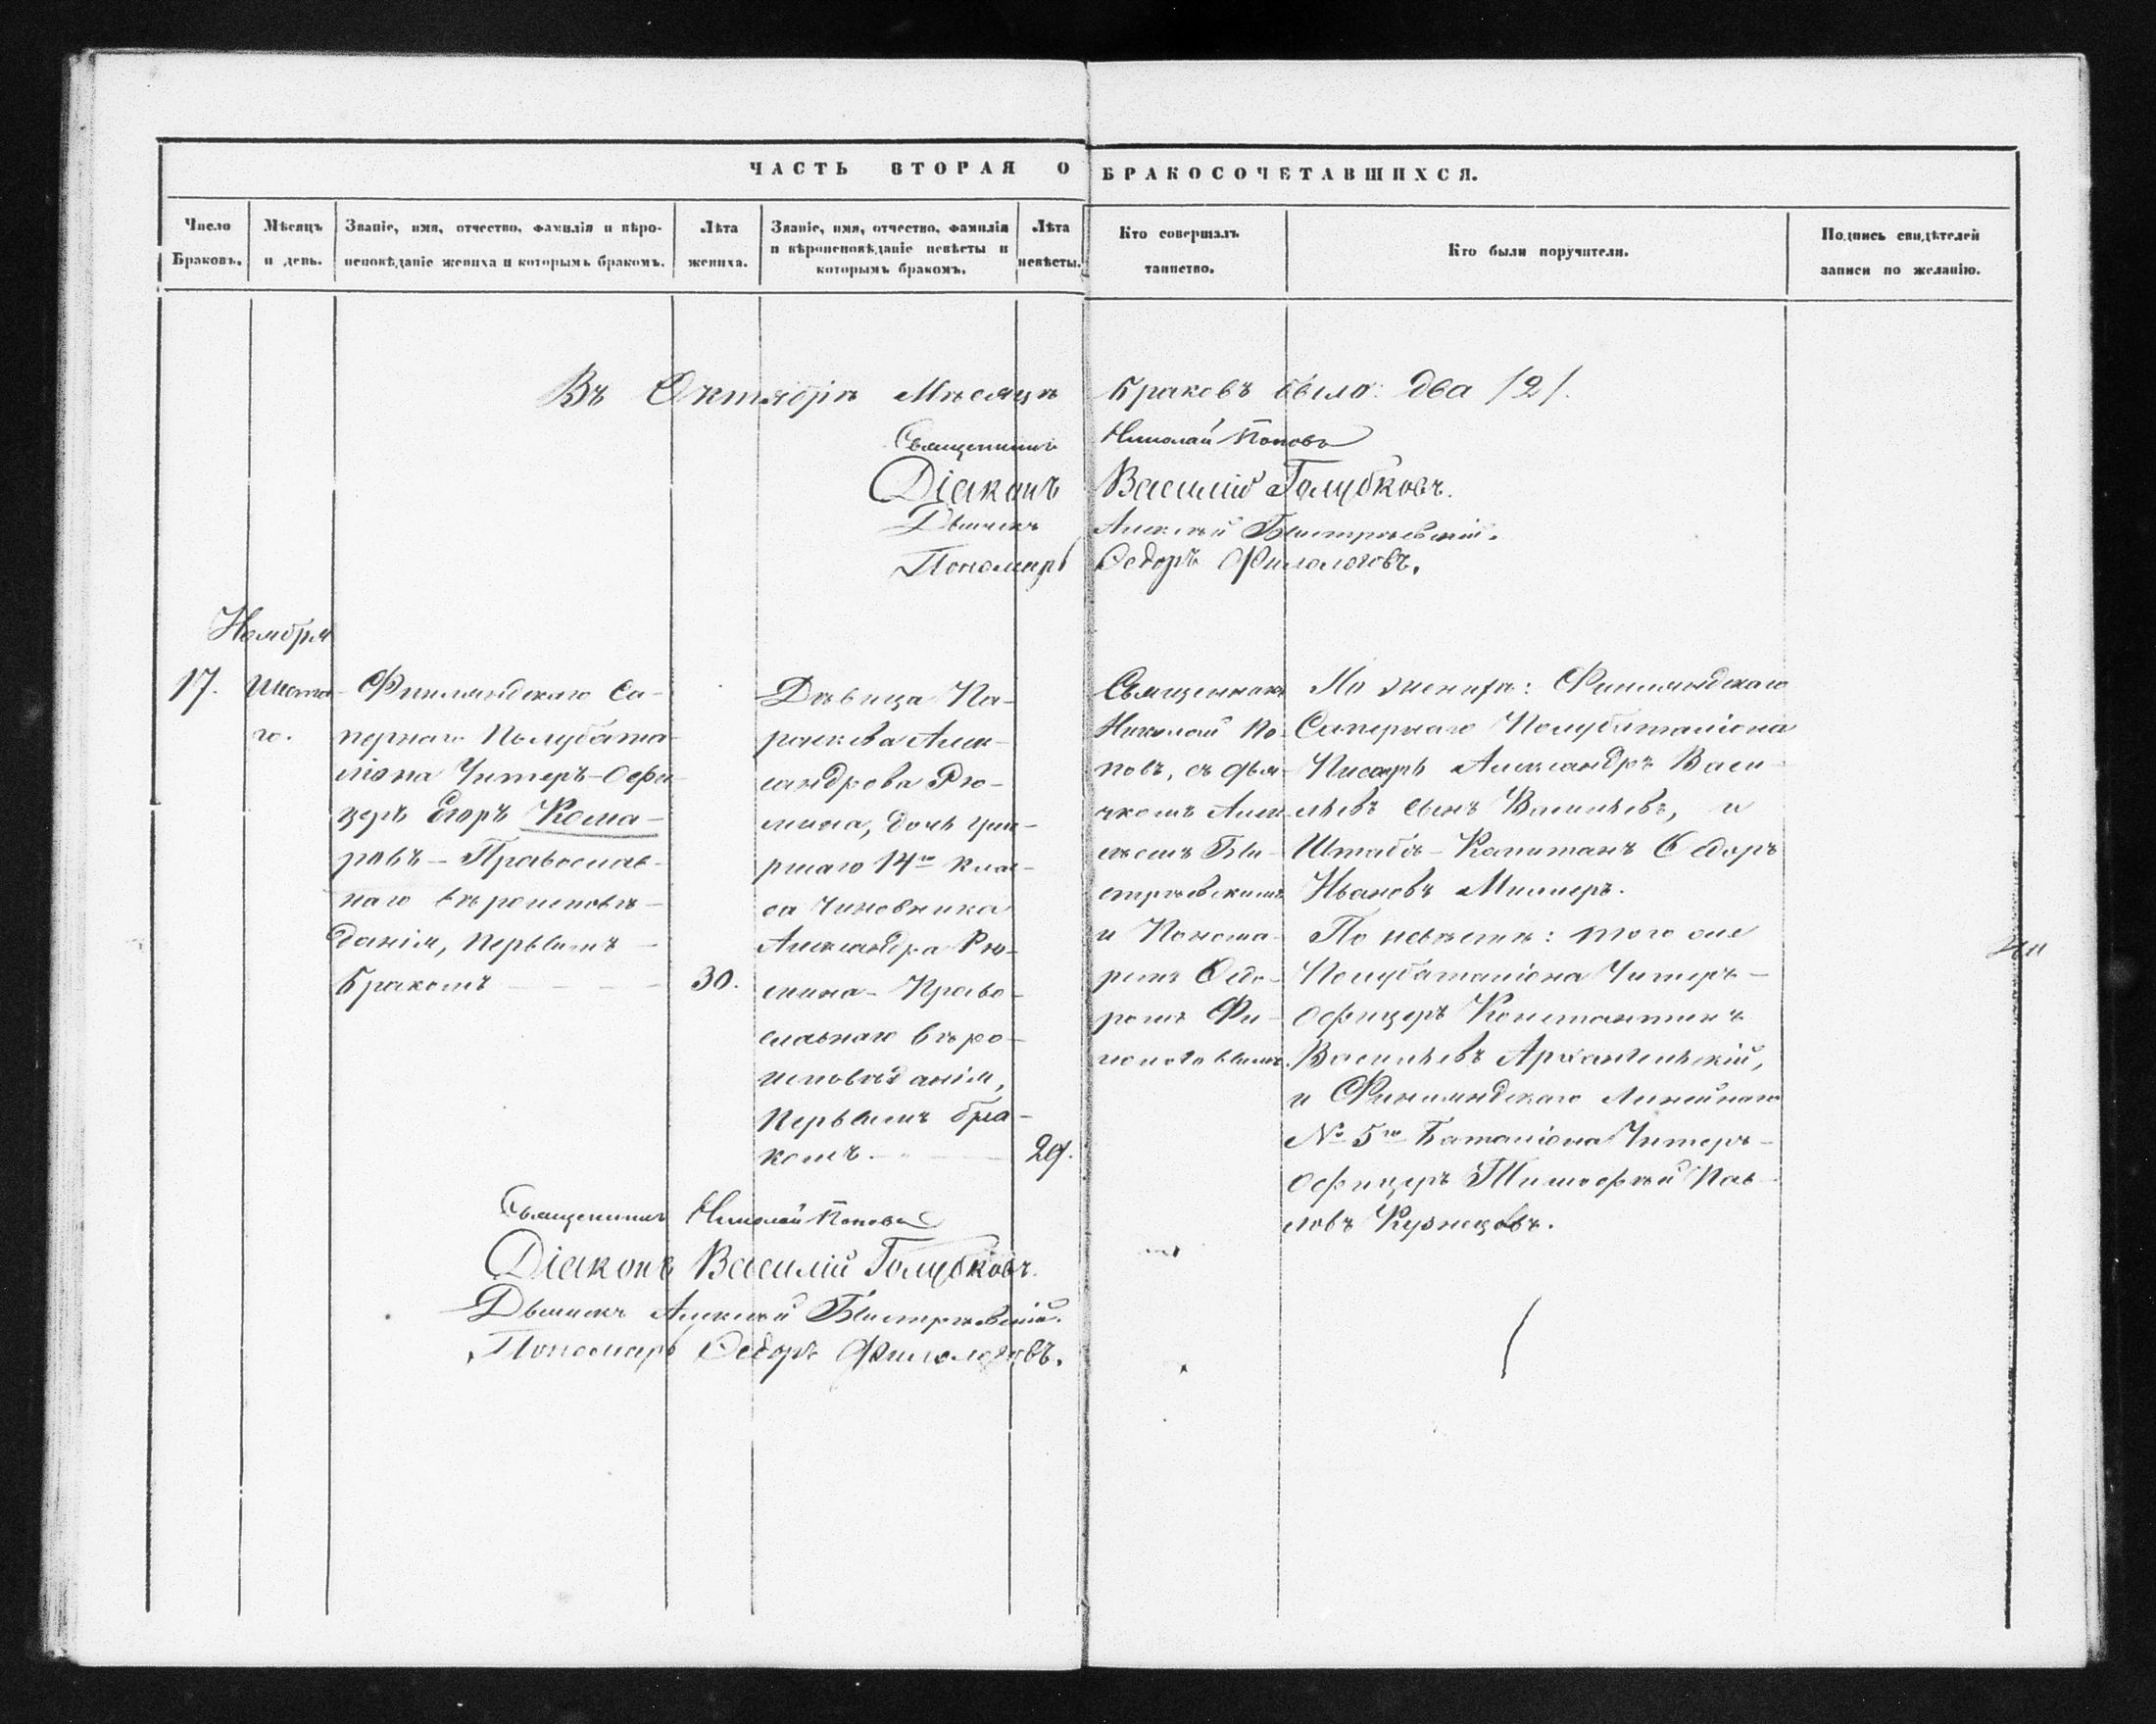 ЧАСТЬ ВТОРАЯ О БРАКОСОЧЕТАВШИХСЯ.
Число Браковъ.
Мѣсяцъ и день.
Званіе, имя, отчество, фамилія и вѣроисповѣданіе жениха и которымъ бракомъ.
Лѣта жениха.
Званіе, имя, отчество, фамилія и вѣроисповѣданіе невѣсты и которымъ бракомъ.
Лѣта невѣсты.
Кто совершалъ таинство.
Кто были поручители.
Подпись свидѣтелей записи по желанію.
Въ Октябрѣ Мѣсяцѣ браковъ было: два /2/.
Священникъ Николай Поповъ
Діаконъ Василій Голубковъ.
Дьячекъ Алексѣй Быстревскій.
Пономарь Ѳедоръ Филологовъ.
Ноября
17.
Шеста-
го.
Финляндскаго Са-
пернаго Полубата-
ліона Унтеръ-Офи-
церъ Егоръ Кома-
ровъ - Православ-
наго вѣроисповѣ-
данія, первымъ
бракомъ
30.
Дѣвица Па-
раскева Алек-
сандрова Рю-
мина, дочь
14го клас-
са Чиновника
Александра Рю-
мина - Право-
славнаго вѣро-
исповѣданія,
первымъ бра-
комъ.
29.
Священникъ
Николай По-
повъ, съ дья-
чкомъ Алек-
сѣемъ Бы-
стревскимъ
и Понома-
ремъ Ѳедо-
ромъ Фи-
лологовымъ.
По женихѣ: Финляндскаго
Сапернаго Полубаталіона
Писарь Александръ Васи-
льевъ сынъ Васильевъ, и
Штабсъ-Капитанъ Ѳедоръ
Ивановъ Миллеръ.
По невѣстѣ: того же
Полубаталіона Унтеръ-
Офицеръ Константинъ
Васильевъ Архангельскій,
и Финляндскаго Линейнаго
№ 5го Баталіона Унтеръ-
Офицеръ Тимофѣй Пав-
ловъ Кузнецовъ.
Священникъ Николай Поповъ
Діаконъ Василій Голубковъ.
Дьячекъ Алексѣй Быстревскій.
Пономарь Ѳедоръ Филологовъ.